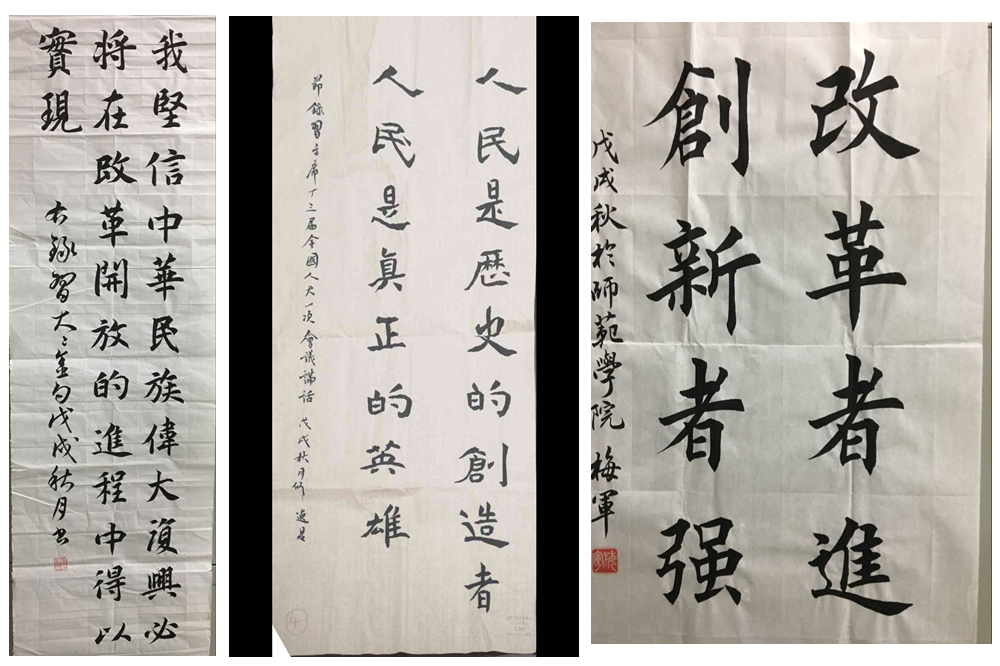 我堅信中華民族偉大復興必
将在改革開放的進程中得以
實現
右錄習大〻金句戊戌秋月书
人民是歷史的創造者
人民是真正的英雄
節錄習主席十三届全國人大一次會議講話 戊戌秋月
4
改革者進
創新者强
戊戌秋於師范學院 梅軍